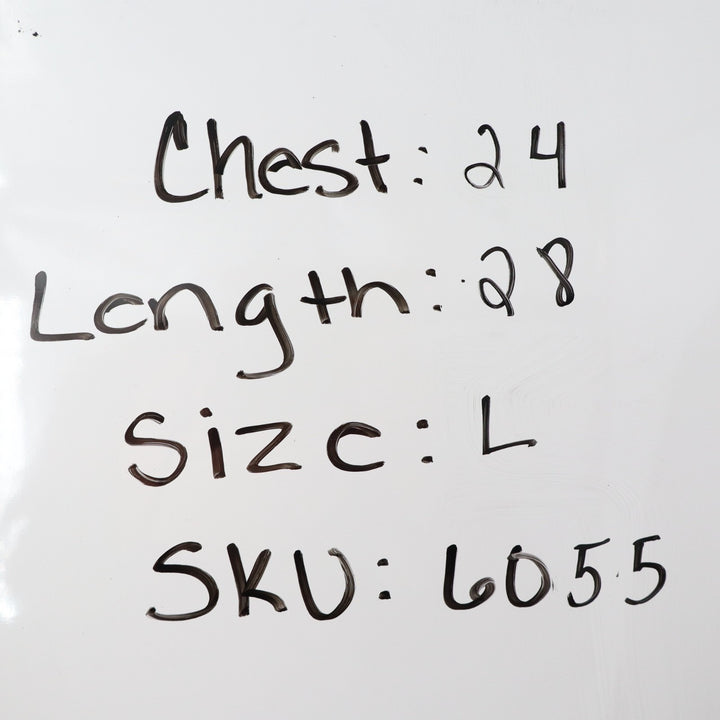 Chest: 24
Length: 28
Size: L
SKU: 6055